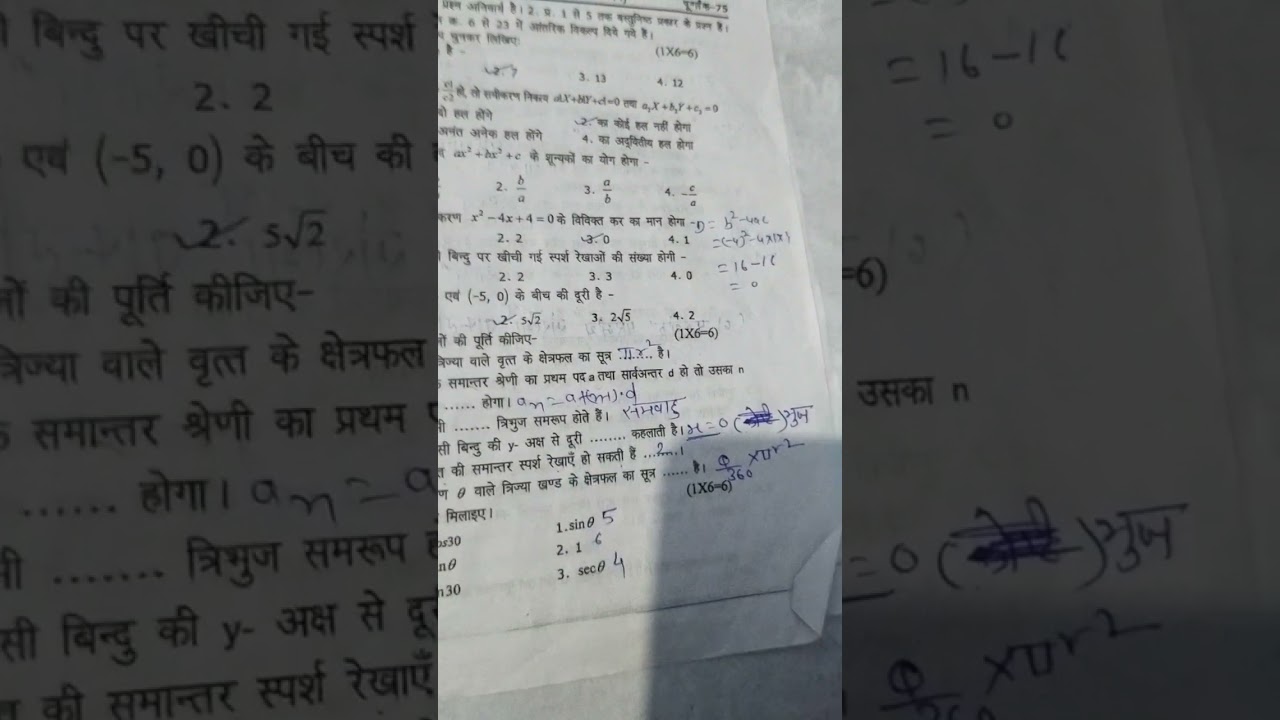 प्रश्न अनिवार्य है। 2. प्र. 1 से 5 तक वस्तुनिष्ठ प्रकार के प्रश्न है।
क. 6 से 23 में आंतरिक विकल्प दिये गये है।
चुनकर लिखिए
(1X6=6)
है -
2. 7 3. 13 4. 12
हो, तो समीकरण निकाय तथा a₂X+b₂Y+c₂=0
दो हल होंगे 2. का कोई हल नहीं होगा
अनंत अनेक हल होंगे 4. का अद्वितीय हल होगा
ax²+bx²+c के शून्यकों का योग होगा -
2. b/a 3. a/b 4. -c/a
करण x²-4x+4=0 के विविक्त कर का मान होगा - D = b²-4ac
2. 2 3. 0 4. 1 =(-4)²-4×1×4
बिन्दु पर खीची गई स्पर्श रेखाओं की संख्या होगी - = 16-16
2. 2 3. 3 4. 0 = 0
एवं (-5, 0) के बीच की दूरी है -
2. 5√2 3. 2√5 4. 2
ों की पूर्ति कीजिए- (1X6=6)
त्रिज्या वाले वृत्त के क्षेत्रफल का सूत्र ..πr².. है।
समान्तर श्रेणी का प्रथम पद a तथा सार्वअन्तर d हो तो उसका n
...... होगा। aₙ=a+(n-1)·d
ी ....... त्रिभुज समरूप होते हैं। समबाहु
सी बिन्दु की y- अक्ष से दूरी ........ कहलाती है। x=0 ( ) भुज
त की समान्तर स्पर्श रेखाएँ हो सकती है ...2...।
ण θ वाले त्रिज्या खण्ड के क्षेत्रफल का सूत्र ...... है। θ/360 ×πr²
(1X6=6)
मिलाइए।
os30 1. sinθ 5
nθ 2. 1 6
n30 3. secθ 4